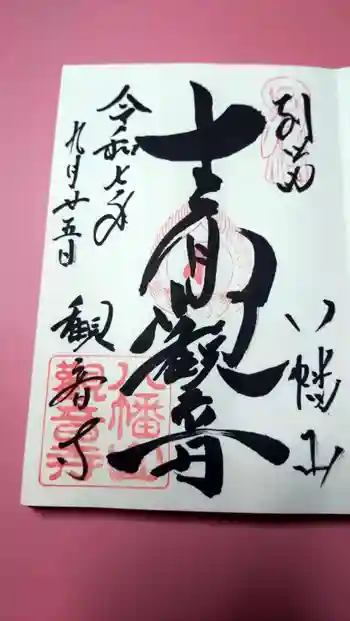 八幡山
十一面觀音
令和七年
九月廿五日
觀音寺
八幡山
觀音寺